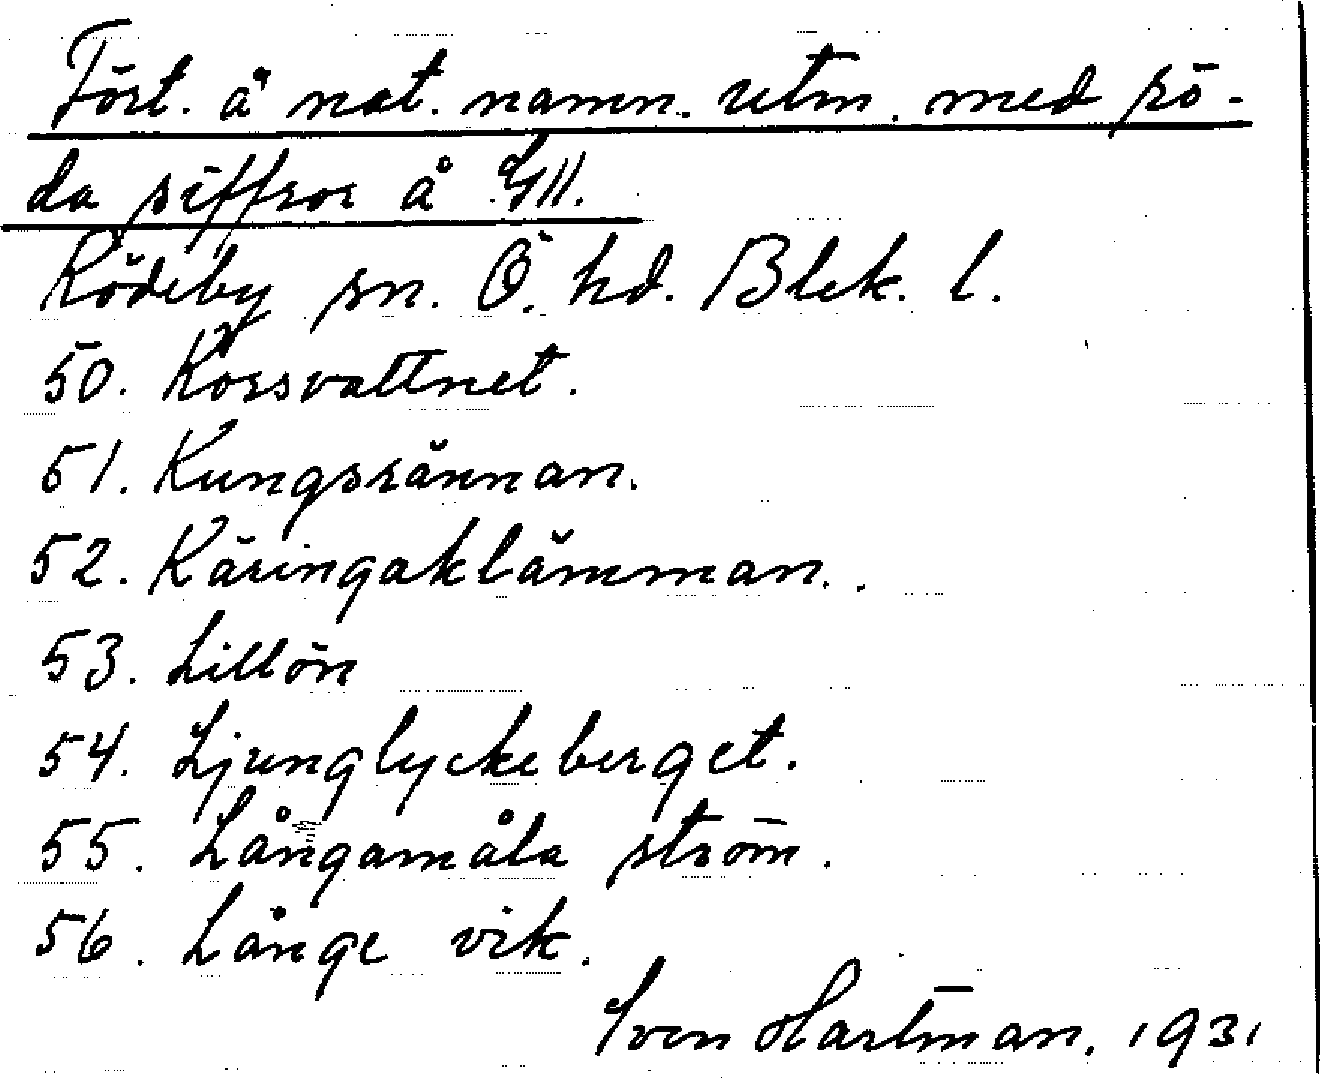 Fört. å nat. namn. utm. med rö-
da siffror å GII.
Rödeby sn. Ö. hd. Blek. l.
50. Korsvattnet.
51. Kungsrännan.
52. Käringaklämman.
53. Lillön
54. Ljunglyckeberget.
55. Långamåla ström.
56. Långe vik.
Sven Hartman. 1931